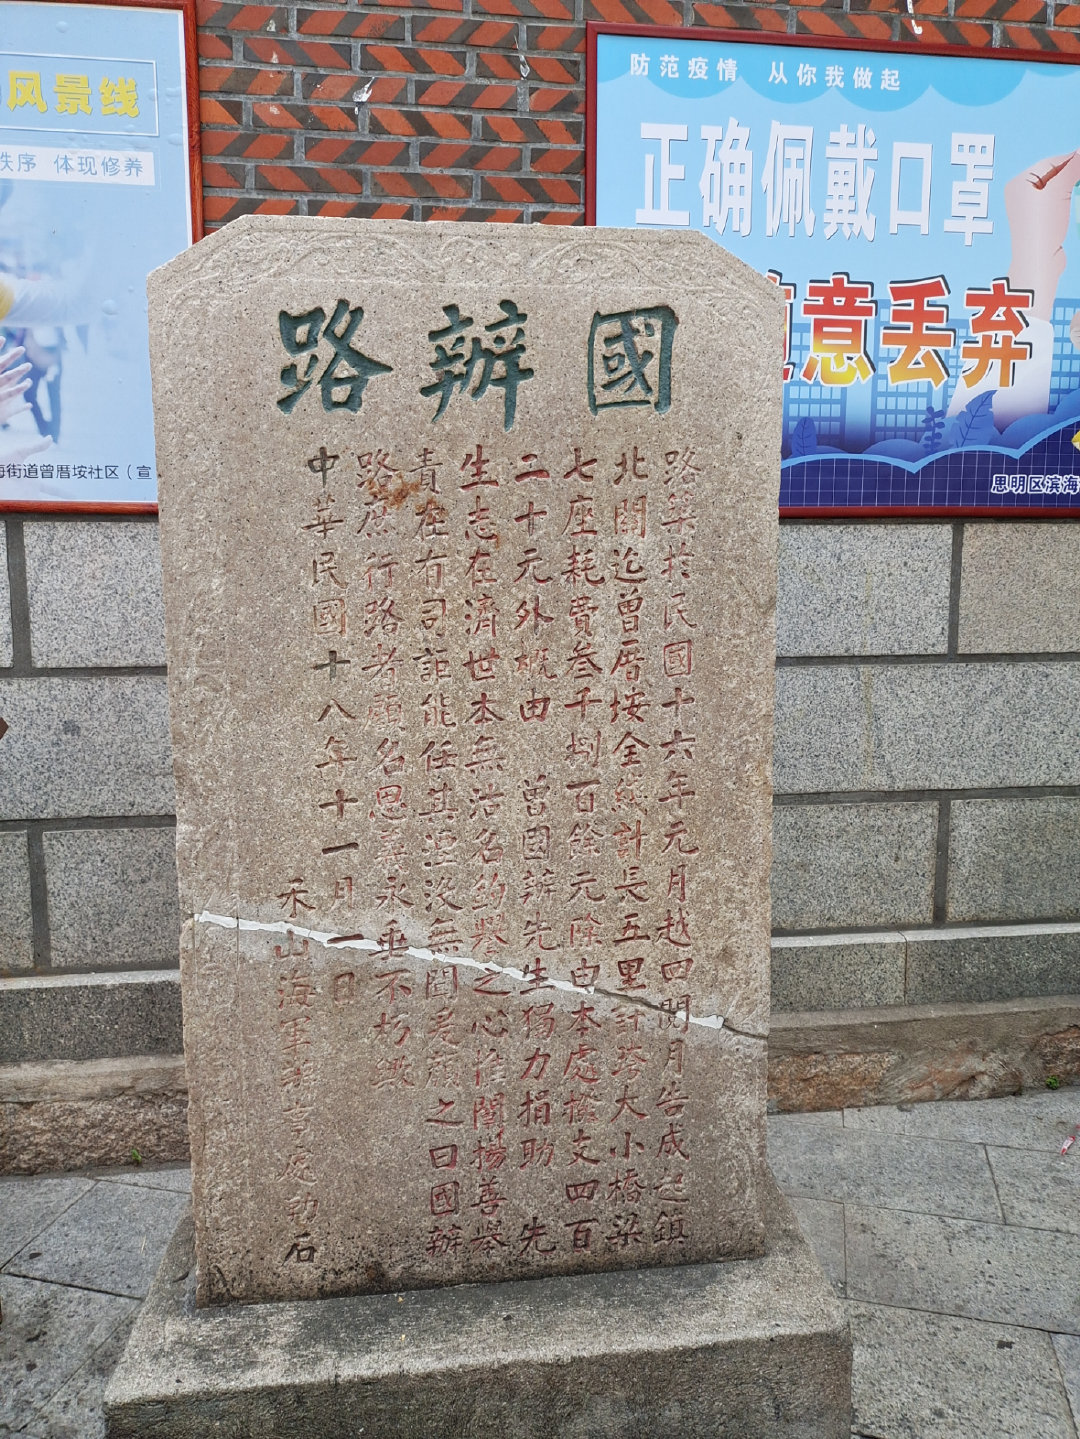 風景线
秩序 体现修养
海街道曾厝垵社区（宣
防范疫情 从你我做起
正确佩戴口罩
意丢弃
思明区滨海
國辦路
路築於民國十六年元月越四閱月告成起鎮
北關迄曾厝按全線計長五里計跨大小橋梁
七座耗費叁千捌百餘元除由本處撥支四百
二十元外概由 曾國辦先生獨力捐助 先
生志在濟世本無沽名釣譽之心惟闡揚善舉
責在有司詎能任其湮沒無聞爰顏之曰國辦
路庶行路者顧名思義永垂不朽歟
中華民國十八年十一月一日
禾山海軍辦事處勒石